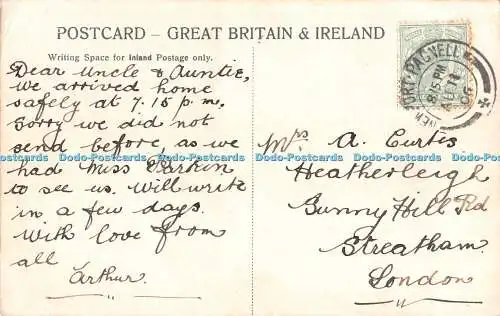 POSTCARD – GREAT BRITAIN & IRELAND
Writing Space for Inland Postage only.
Dear Uncle & Auntie,
we arrived home
safely at 7.15 p.m.
Sorry we did not
send before, as we
had Miss Parkin
to see us. Will write
in a few days.
With love from
all
Arthur.
NEWPORT PAGNELL
8.15 PM
AU 14
06
Mrs A. Curtis
Heatherleigh
Sunny Hill Rd
Streatham.
London.
Dodo-Postcards Dodo-Postcards Dodo-Postcards Dodo-Postcards Dodo-Postcards Dodo-Postcards